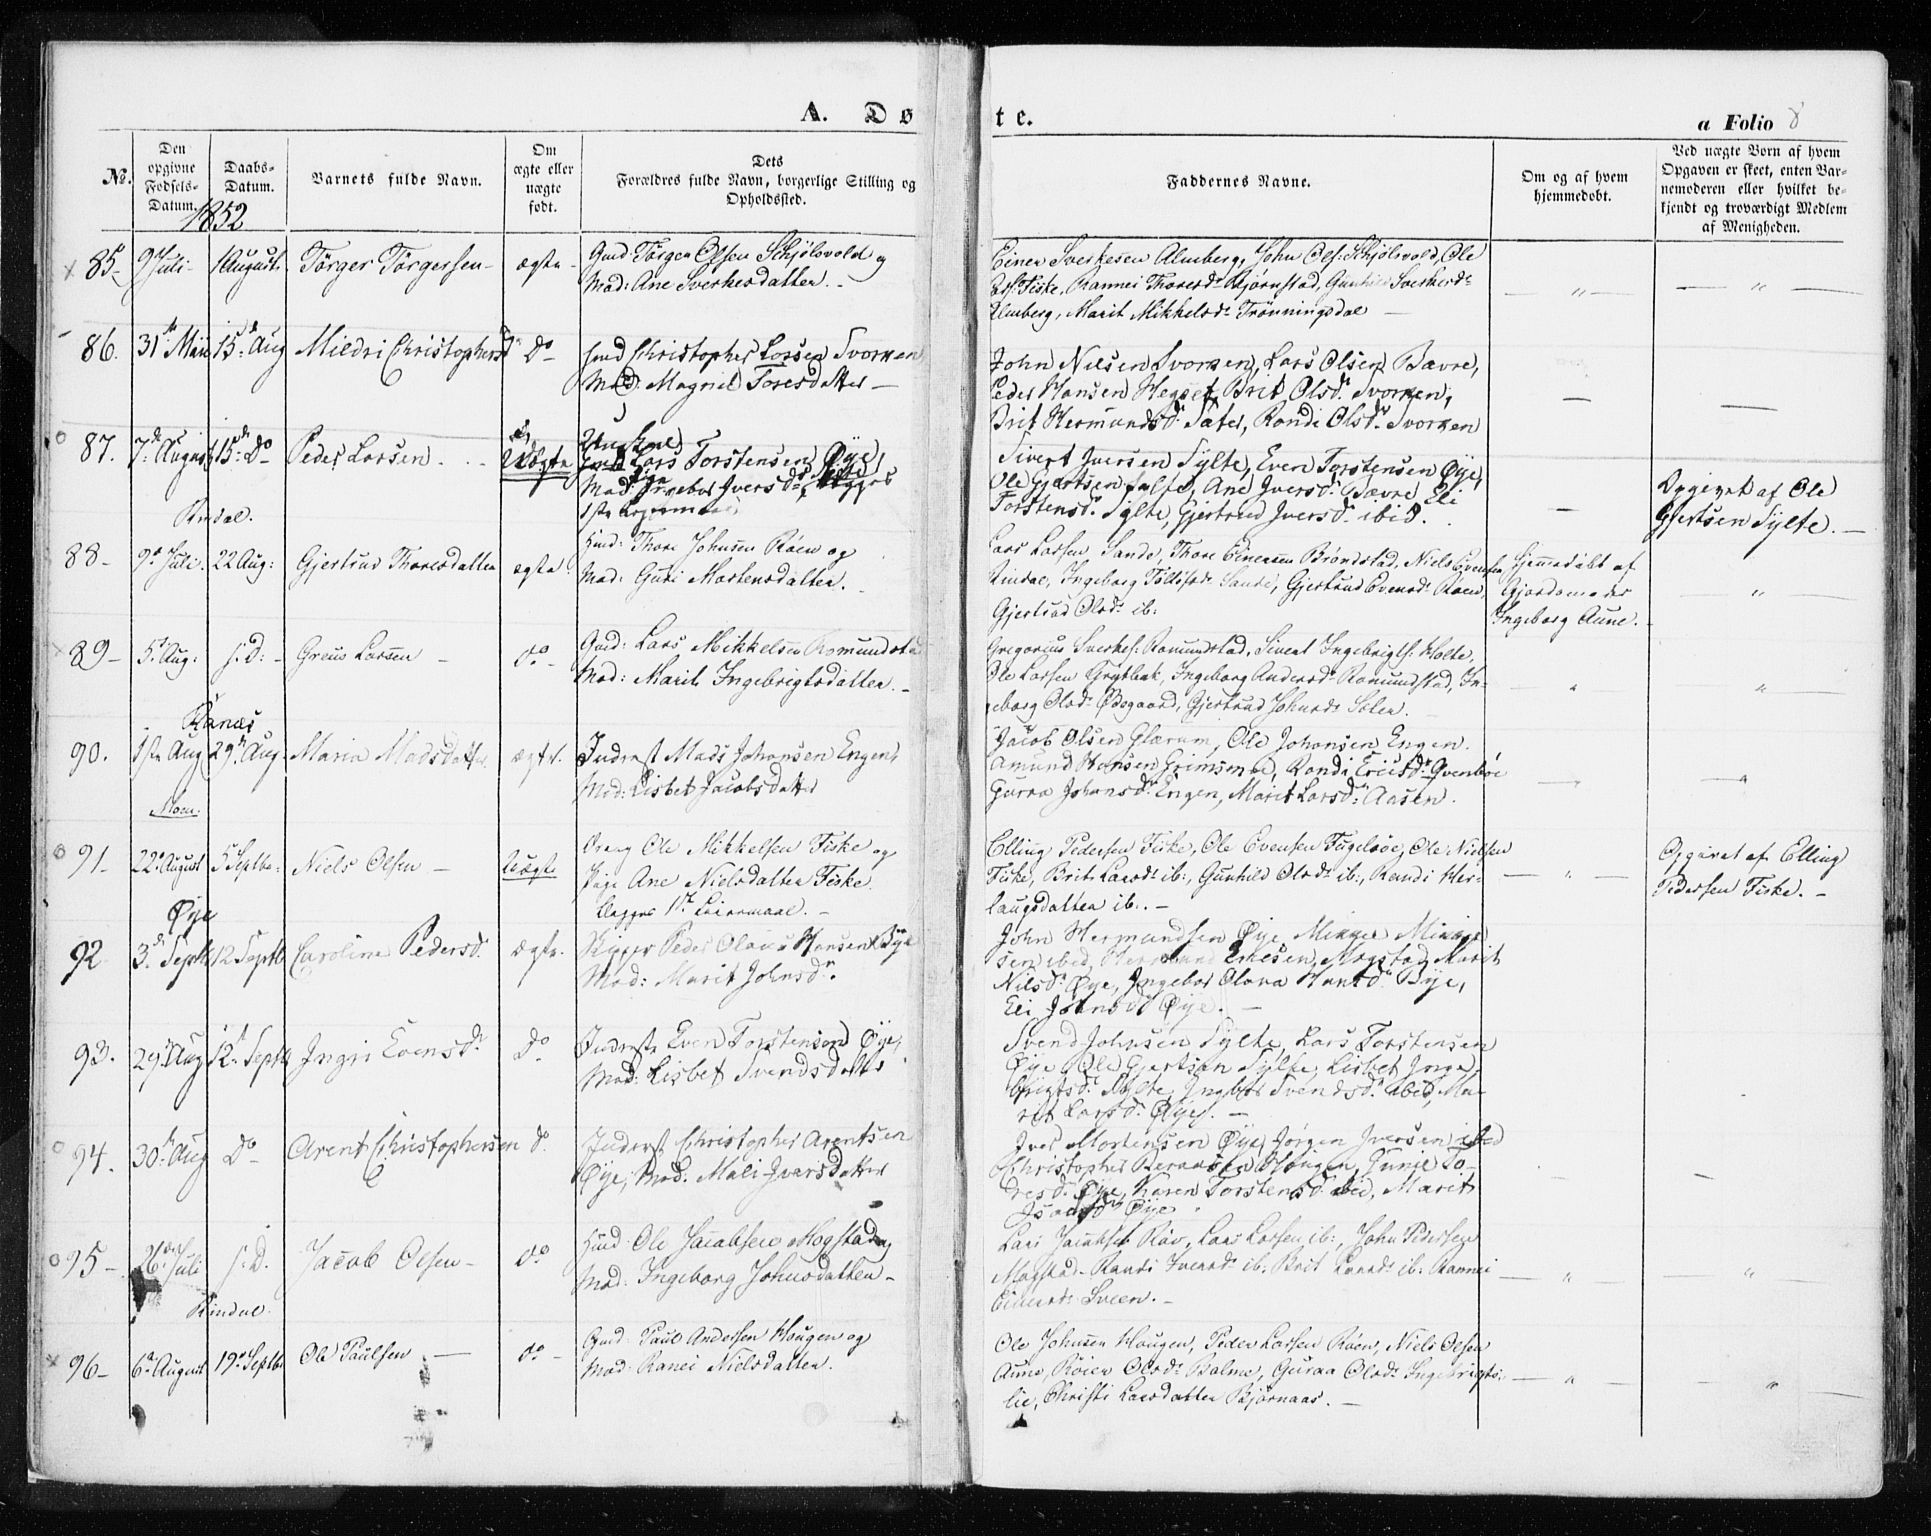 A. Dø
te.
a Folio 8
No.
Den opgivne Fødsels-Datum.
Daabs-Datum.
Barnets fulde Navn.
Om ægte eller uægte født.
Dets Forældres fulde Navn, borgerlige Stilling og Opholdssted.
Faddernes Navne.
Om og af hvem hjemmedøbt.
Ved uægte Børn af hvem Opgaven er skeet, enten Barnemoderen eller hvilket bekjendt og troværdigt Medlem af Menigheden.
1852
85- 9 Juli- 1 August Törger Törgersen- ægte- Gmd: Törger Olsen Schjölsvold og
Mod: Ane Sverkesdatter.-
Einer Sverkesen Almberg, John Ols: Schjölsvold, Ole
Fiske, Rannei Thoresd: Bjørnstad, Gunhild Sverkesd:
Almberg, Marit Mikkelsd: Trönningsdal —
86. 31te Mai 15de Aug Mildri Christophersd Do Christopher Larsen Svorken
Mod. Magnil Toresdatter —
John Nilsen Svorken, Lars Olsen Bævre,
Peder Hansen Hegset, Brit Olsd: Svorken,
Brit Hermundsd: Sæter, Randi Olsd: Svorken
87. 7de August 15de Do Peder Larsen. Uægte Ungkarl
Lars Torstensen Øye,
Mod: Pige Ingebor Iversd: Sylte, begges
1ste Leiermaal
Sivert Iversen Sylte, Even Torstensen Øye,
Ole Gjertsen Sylte, Ane Iversd: Bævre, Eli
Torstensd: Sylte, Gjertrud Iversd: ibid.
Opgivet af Ole
Gjertsen Sylte. —
Rindal.
88- 9de Juli. 22 Aug: Gjertrud Thoresdatter ægte. Hmd: Thore Johnsen Røen og
Mod: Guri Mortensdatter.
Lars Larsen Sande, Thore Einersen Brøndstad, Niels Evensen
Rindal, Ingeborg Sande, Gjertrud Evensd: Røen,
Gjertrud Olsd: ib:
Hjemmedöbt af
Gjordemoder
Ingeborg Aune.
89- 5te Aug: s.D:- Greus Larsen — do- Gmd: Lars Mikkelsen Romundstad
Mod: Marit Ingebrigtsdatter.-
Gregorius Sverkes: Romundstad, Sivert Ingebrigts: Holte,
Ole Larsen Grytbak, Ingeborg Andersd: Romundstad, In-
geborg Olsd: Ødegaard, Gjertrud Johnsd: Solem.
Ranæs
90. 1ste Aug 29de Aug. Maria Madsdatter ægte. Inderst Mads Johansen Engen,
Mod: Lisbet Jacobsdatter
Jacob Olsen Glærum, Ole Johansen Engen.
Amund Hansen Grimsmo, Randi Ericsd: Qvenbøe
Guraa Johansd: Engen, Marit Larsd: Aasen.
91- 22de August 5 Septbr: Niels Olsen — Uægte Dreng Ole Mikkelsen Fiske og
Pige Ane Nielsdatter Fiske
begges 1ste Leiermaal. —
Elling Pedersen Fiske, Ole Evensen Fugelsøe, Ole Nielsen
Fiske, Brit Larsd: ib:, Gunhild Olsd: ib:, Randi Her-
laugsdatter ib:.-
Opgivet af Elling
Pedersen Fiske. —
Øye
92 3de Septb 12 Septb Caroline Pedersd. ægte. Skipper Peder Olaus Hansen Bye
Mod: Marit Johnsd:
John Hermundsen Øye, Mikkel Mikkel-
sen ibid, Hermund Ericsen Mogstad, Marit
Nilsd: Øye, Ingebor Olava Hansd: Bye,
Eli Johnsd: Øye. —
93. 29de Aug 12te Septb Ingri Evensd: Do Inderste Even Torstensen Øye,
Mod: Lisbet Svendsdatter
Svend Johnsen Sylte, Lars Torstensen
Øye, Ole Gjertsen Sylte, Lisbet Inge-
brigtsd: Sylte, Ingebor Svendsd: ibid, Ma-
rit Larsd: Øye. —
94. 30te Aug Do Arent Christophersen do. Inderst Christopher Arentsen
Øye, Mod. Mali Iversdatter
Iver Mortensen Øye, Jørgen Iversen ibid
Christopher Haugen, Gunil To-
resd: Øye, Karen Torstensd: ibid, Marit
Isacsd: Øye
95- 26de Juli s.D. Jacob Olsen- do Hmd: Ole Jacobsen Mogstad og
Mod: Ingeborg Johnsdatter-
Lars Jacobsen Røv, Lars Larsen ib:, John Pedersen
Mogstad, Randi Iversd: ib: Brit Larsd: ib: Rannei
Einersd: Sveen. —
Rindal.
96- 6te August 19de Septbr Ole Paulsen — do- Gmd: Paul Andersen Haugen og
Mod: Ranei Nielsdatter.
Ole Johnsen Haugen, Peder Larsen Røen, Niels Olsen
Aune, Olsd: Balme, Guraa Olsd: Ingebrigts-
lie, Christi Larsdatter Bjørnaas. —